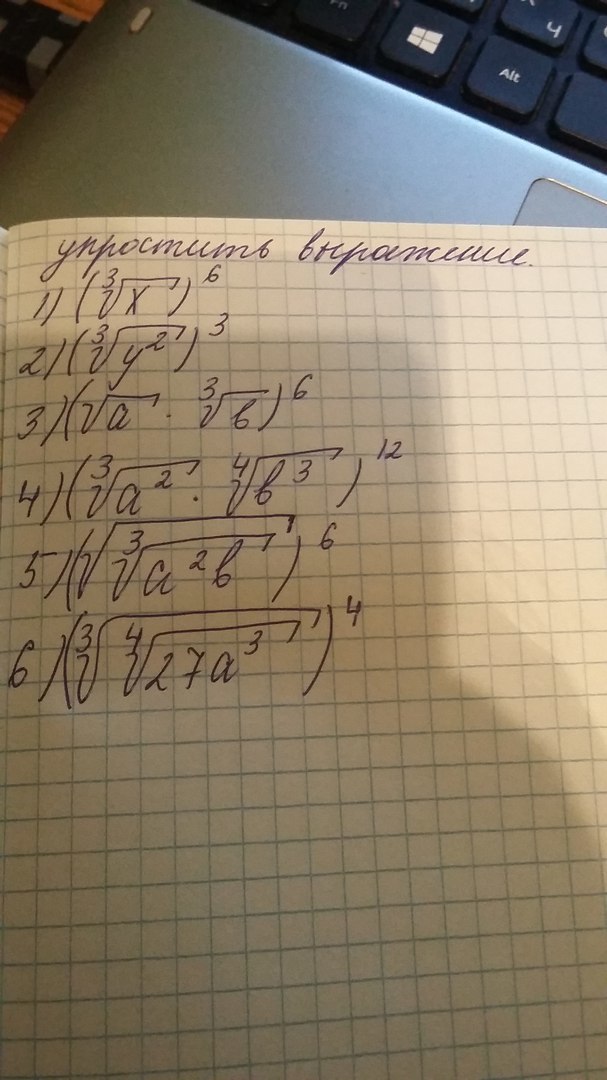 Fn
ч
Alt
упростить выражение.
1) (∛x)⁶
2) (∛y²)³
3) (√a · ∛b)⁶
4) (∛a² · ∜b³)¹²
5) (√∛a²b)⁶
6) (∛∜27a³)⁴